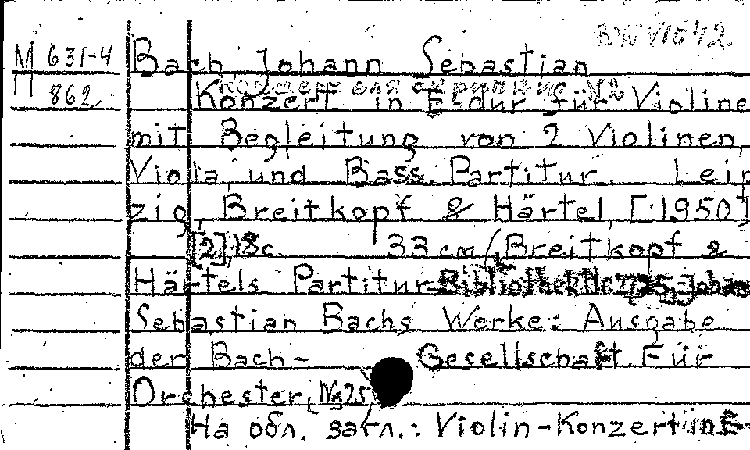 BWV 1042
М 631-4 Bach, Johann Sebastian
862
Концерт для скрипки № 2
Konzert in E-dur für Violine
mit Begleitung von 2 Violinen,
Viola und Bass. Partitur. Leip-
zig, Breitkopf & Härtel [1950]
[2], 18 c. 33 cm (Breitkopf &
Härtels Partitur-Bibliothek Johan
Sebastian Bachs Werke: Ausgabe
der Bach-Gesellschaft. Für
Orchester, № 25
На обл. загл.: Violin-Konzert in E-